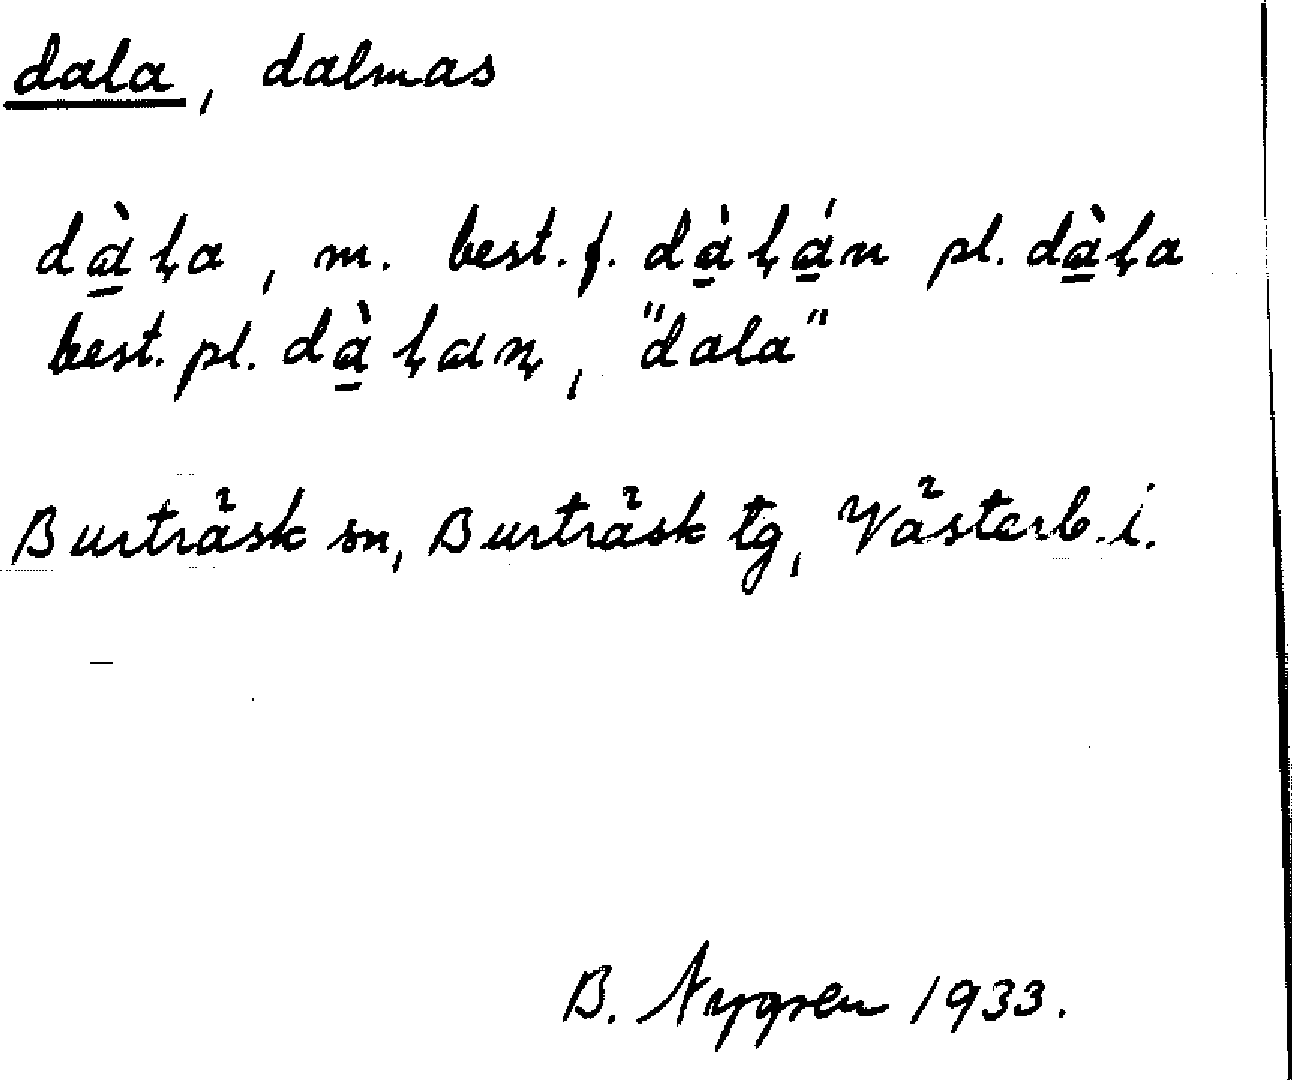 dala, dalmas
dà̱ḷa, m. best. f. dà̱ḷá̱n pl. dà̱ḷa
best. pl. dà̱ḷaṇ, "dala"
Burträsk sn, Burträsk tg, Västerb. i.
B. Nygren 1933.